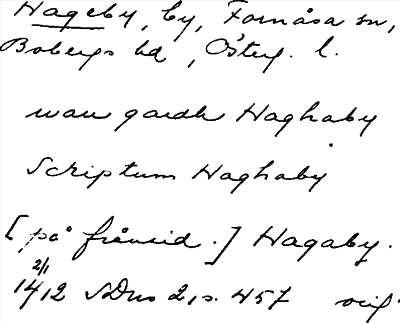 Hageby, by, Fornåsa sn,
Bobergs hd, Österg. l.
wan gardh Haghaby
Scriptum Haghaby
[på frånsid.] Hagaby.
2/1
1412 SDns 2, s. 457 orig.